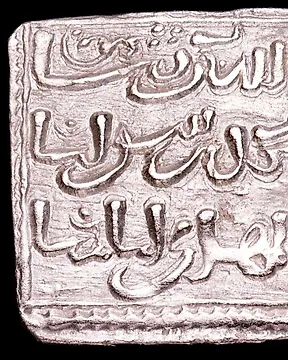 الله ربنا
رسولنا
امامنا